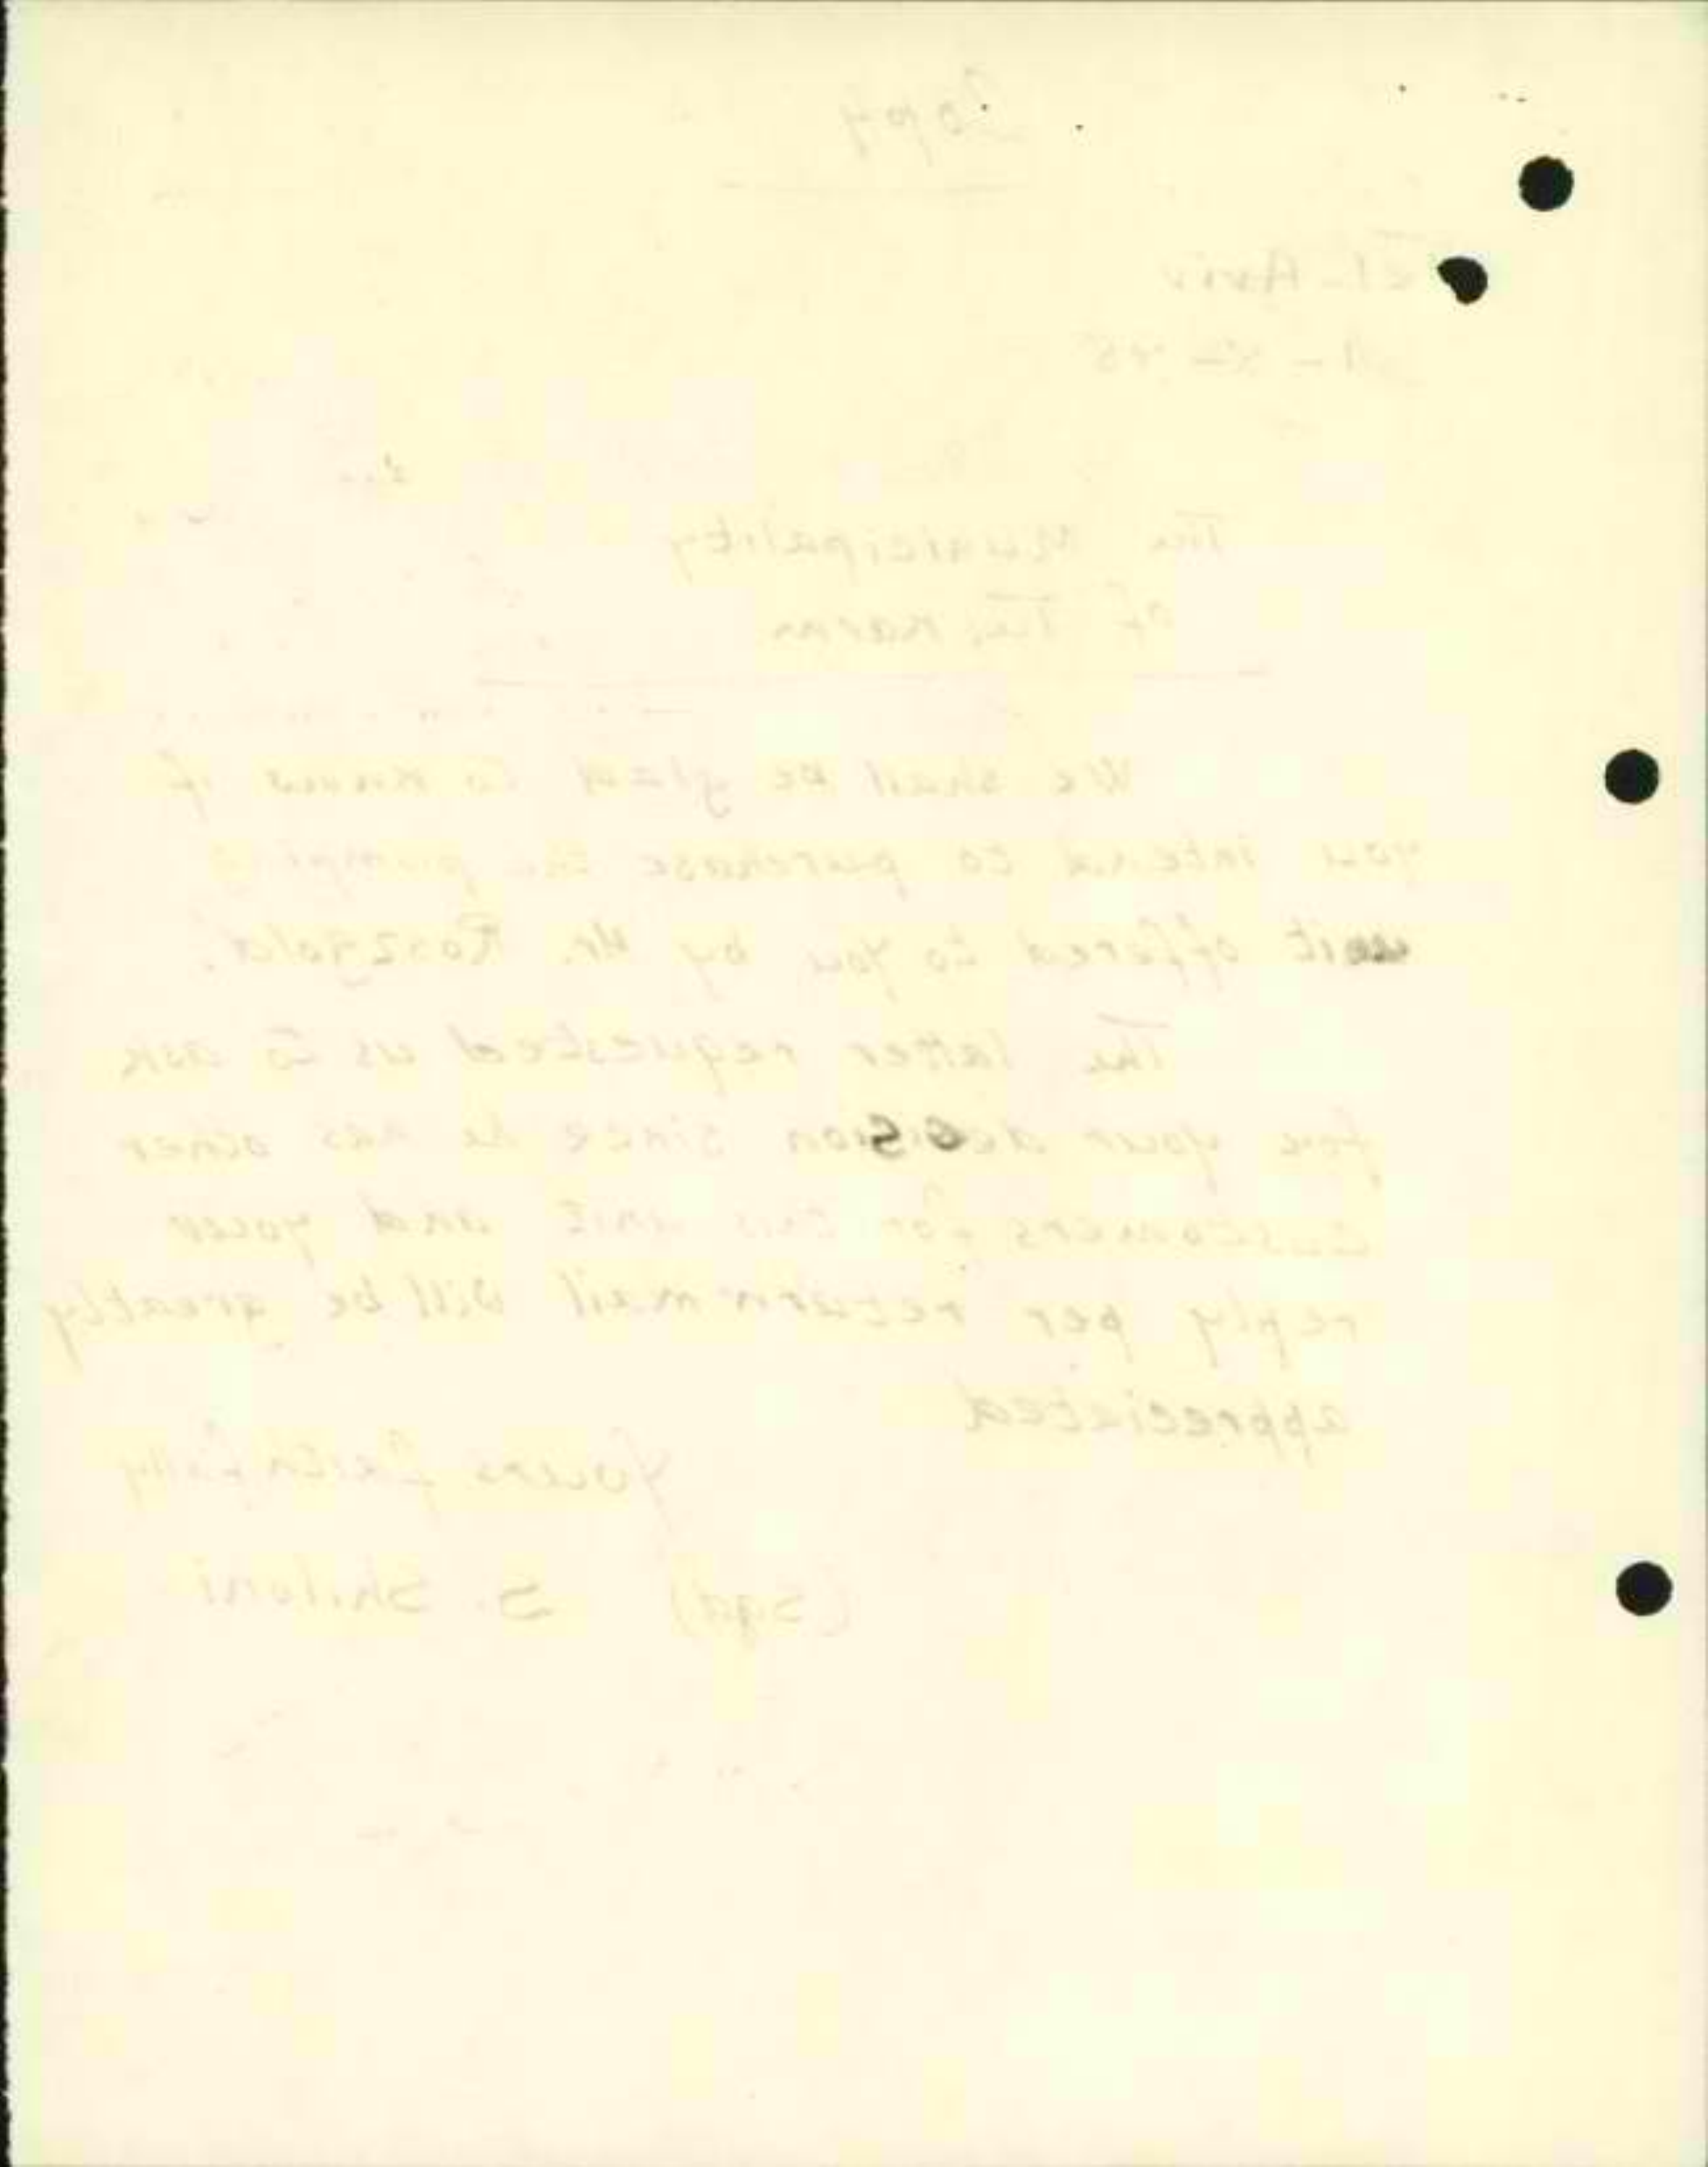 Copy
Tel-Aviv
The Municipality
of Tul Karm
We shall be glad to know if
you intend to purchase the pumping
unit offered to you by Mr. Roszgold.
The latter requested us to ask
for your decision since he has other
customers for this unit and your
reply per return mail will be greatly
appreciated
Yours faithfully
(Sgd) S. Shiloni